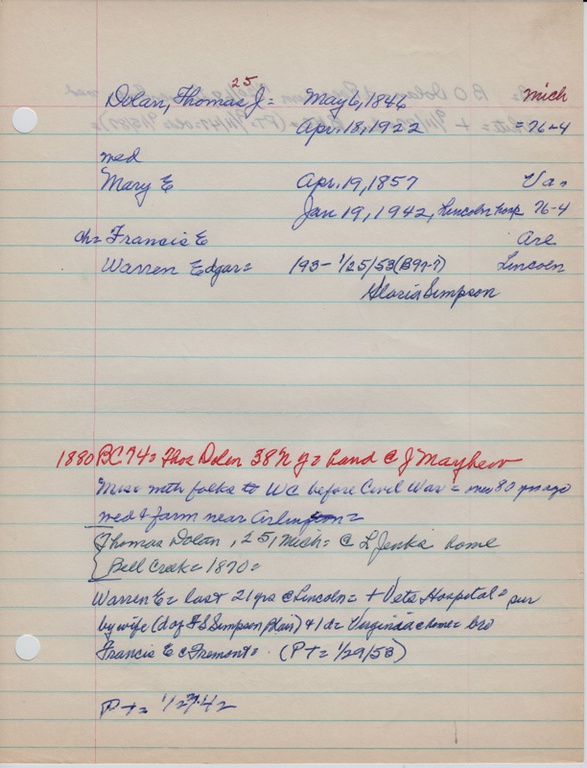 25
Dolan, Thomas J = May 6, 1846 Mich
Apr. 18, 1922 = 76-4
med
Mary E Apr. 19, 1857 Va=
Jan 19, 1942, Lincoln hosp 76-4
ch = Francis E Are
Warren Edgar = 193- 1/25/53 (B97-7) Lincoln
Gloria Simpson
1880 BC 74= Thos Dolen 38 N Y= hand @ J Mayhew
Mise with folks to WC before Civil War = over 80 yrs ago
med & farm near Arlington=
Thomas Dolan, 25, Mich= @ L Jenks home
Bell Creek = 1870=
Warren E= last 21 yrs @ Lincoln= + Vets Hospital= sur
by wife (d of F S Simpson Blair) & 1 d= Virginia @ home= bro
Francis E @ Fremont= (PT= 1/29/53)
PT= 1/27-42